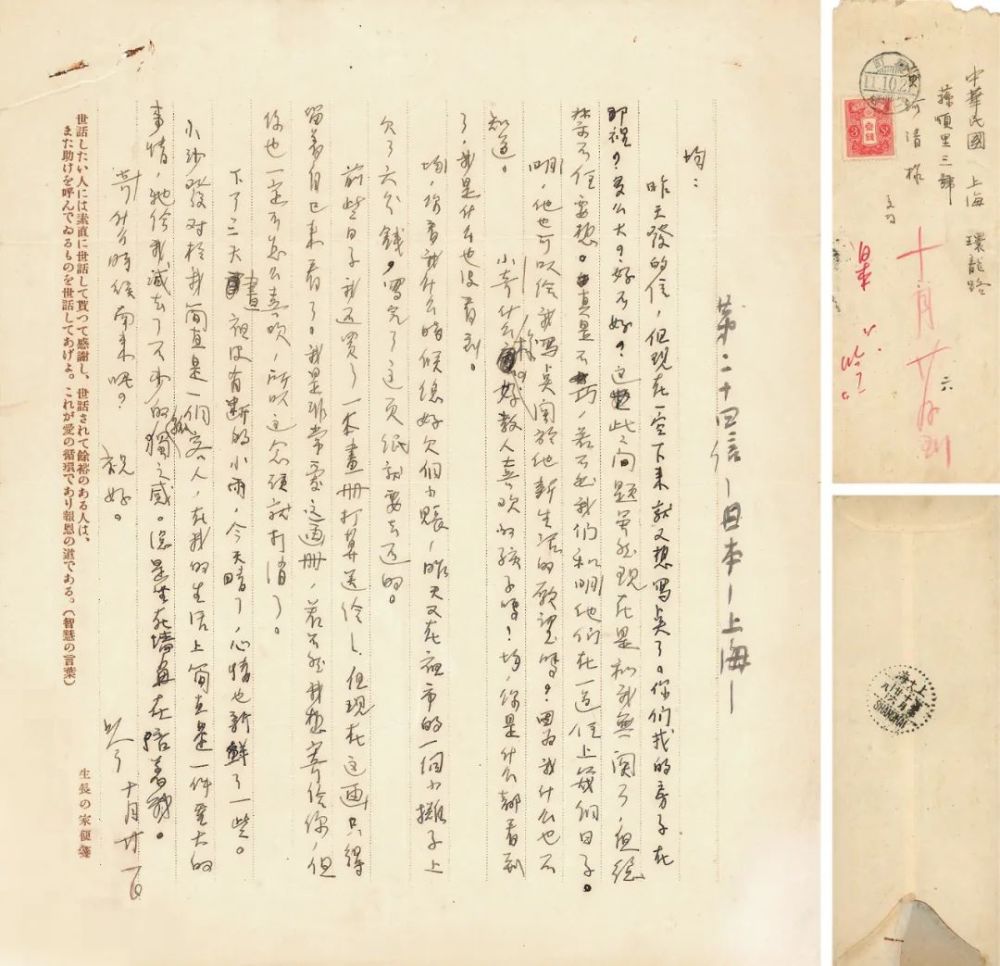 第二十四信—日本—上海—
均：
昨天發的信，但現在一空下来就又想寫点了。你们找的房子在
那裡？多么大？好不好？这些问題虽然現在是和我無関了，但総
禁不住要想。真是不巧，若不然我们和明他们在一道住上幾個日子。
明，他也可以给我寫点関於他新生活的願望嗎？因為我什么也不
知道。小奇什么樣？好教人喜欢的孩子嗎？均，你是什么都看到
了，我是什么也没看到。
均，你看我什么時候総好欠個小賬，昨天又在夜市的一個小攤子上
欠了六分錢，寫完了这页纸就要去还的。
前些日子我还買了一本畫册打算送给L。但現在这画只得
留着自己来看了。我是非常愛这画册，若不然我想寄给你，但
你也一定不怎么喜欢，所以这念頭就打消了。
下了三天晝夜没有断的小雨，今天晴了，心情也新鮮了一些。
小沙發对於我简直是一個客人，在我的生活上简直是一件重大的
事情，牠给我減去了不少的孤獨之感。総是坐在墻角在陪着我。
奇什么時候南来呢？ 祝好。
吟 十月廿一日
世話したい人には素直に世話して貰つて感謝し、世話されて餘裕のある人は、
また助けを呼んでゐるものを世話してあげよ。これが愛の循環であり報恩の道である。(智慧の言葉)
生長の家便箋
中華民國 上海 環龍路
六
河清樣
十月廿
SHANGHAI